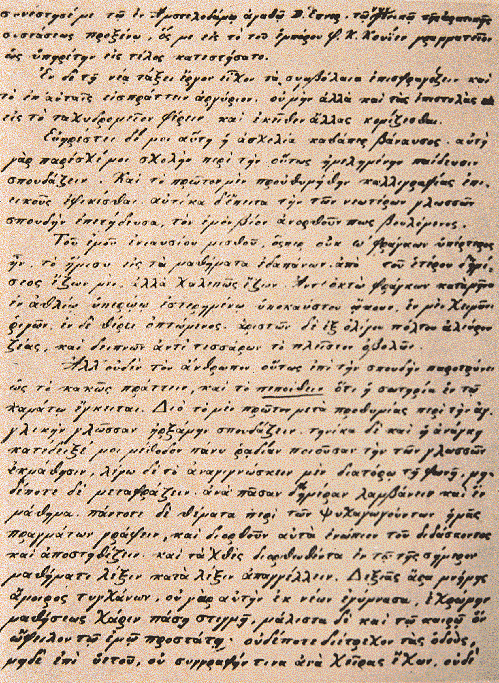 συνέστησέ με τῷ ἐν Ἀμστελοδάμῳ ἀγαθῷ
συστάσεως προξένῳ, ὅς με εἰς τὸ τοῦ ἐμπόρου Φ. Κ. Κουίεν γραμματεῖον
ὡς ὑπηρέτην εἰς τέλος κατεστήσατο.
Ἐν δὲ τῇ νέᾳ τάξει ἔργον εἶχον τὰ συμβόλαια ἐπισφραγίζειν καὶ
τὸ ἐν αὐταῖς εἰσπράττειν ἀργύριον· οὐ μὴν ἀλλὰ καὶ τὰς ἐπιστολὰς
εἰς τὸ ταχυδρομεῖον φέρειν καὶ ἐκεῖθεν ἄλλας κομίζεσθαι.
Εὐηρέστει δέ μοι αὕτη ἡ ἀσχολία καθάπερ βάναυσος· αὐτὴ
γὰρ παρέσχε μοι σχολὴν περὶ τὴν οὕτως ἠμελημένην παίδευσιν
σπουδάζειν. Καὶ τὸ πρῶτον μὲν προὐθυμήθην καλλιγραφίας ἐπι-
εικοῦς ἐφικέσθαι· αὐτίκα δ' ἔπειτα τὴν τῶν νεωτέρων γλωσσῶν
σπουδὴν ἐπετήδευσα, τὸν ἐμὸν βίον ἀνορθοῦν πως βουλόμενος.
Τοῦ ἐμοῦ ἐνιαυσίου μισθοῦ, ὅσπερ οὐκ ω φράγκων ὑπέρτερος
ἦν, τὸ ἥμισυ εἰς τὰ μαθήματα ἐδαπάνων, ἀπὸ τοῦ ἑτέρου δ' ἡμί-
σεος ἔζων μέν, ἀλλὰ χαλεπῶς ἔζων. Ἀντὶ ὀκτὼ φράγκων κατὰ μῆνα
ἐν ἀθλίῳ ὑπερῴῳ ἐστερημένῳ ὑποκαύστου ᾤκουν, ἐν μὲν χειμῶνι
ῥιγῶν, ἐν δὲ θέρει ὀπτώμενος· ἀριστῶν δ' ἐξ ὀλίγου πόλτου
καὶ δειπνῶν ἀντὶ τεσσάρων τὸ πλεῖστον ὀβολῶν.
Ἀλλ' οὐδὲν τὸν ἄνθρωπον οὕτως ἐπὶ τὴν σπουδὴν παροτρύνει
ὡς τὸ κακῶς πράττειν, καὶ τὸ πεποιθέναι ὅτι ἡ σωτηρία ἐν τῷ
καμάτῳ ἔγκειται. Διὸ τὸ μὲν πρῶτον μετὰ προθυμίας περὶ τὴν ἀγ-
γλικὴν γλῶσσαν ἠρξάμην σπουδάζειν· τηνίκα δὲ καὶ ἡ ἀνάγκη
κατέδειξέ μοι μέθοδον πάνυ ῥᾳδίαν ποιοῦσαν τὴν τῶν γλωσσῶν
ἐκμάθησιν, λέγω δὲ τὸ ἀναγιγνώσκειν μὲν διατόρῳ τῇ φωνῇ, μη-
δέποτε δὲ μεταφράζειν· ἀνὰ πᾶσαν δ' ἡμέραν λαμβάνειν καὶ ἓν
μάθημα· πάντοτε δὲ θέματα περὶ τῶν ψυχαγωγούντων ἡμᾶς
πραγμάτων γράφειν, καὶ διορθοῦν αὐτὰ ἐνώπιον τοῦ διδάσκοντος
καὶ ἀποστηθίζειν· καὶ τὰ χθὲς διορθωθέντα ἐν τῷ τῆς σήμερον
μαθήματι λέξιν κατὰ λέξιν ἀπαγγέλλειν. Δεξιᾶς ἄρα μνήμης
ἄμοιρος τυγχάνων, οὐ γὰρ αὐτὴν ἐκ νέου ἐγύμνασα, ἐχρώμην
μαθήσεως χάριν πάσῃ στιγμῇ, μάλιστα δὲ καὶ τῷ καιρῷ ὃν
ὤφειλον τῷ ἐμῷ προστάτῃ· οὐδέποτε διέτρεχον τὰς ὁδούς,
μηδὲ ἐπὶ ὑετοῦ, οὐ συγγραφήν τινα ἀνὰ χεῖρας ἔχων, οὐδὲ